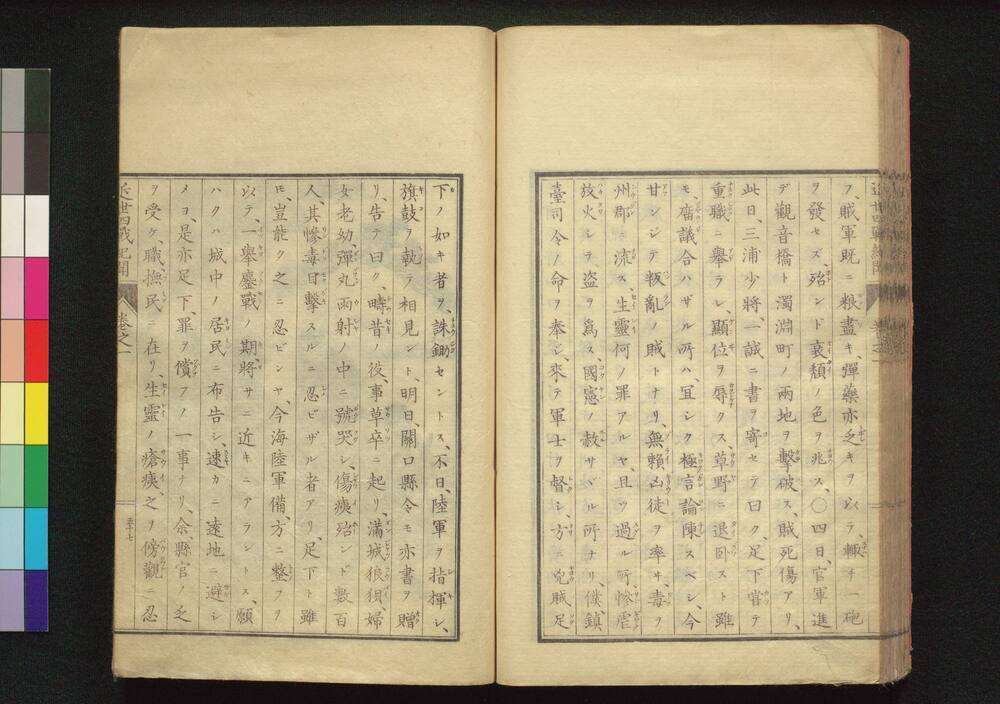 フ、賊軍既ニ粮盡キ、彈藥亦之キヲ以テ、輙チ一砲
ヲ發セズ、殆ンド衰頽ノ色ヲ兆ス、〇四日、官軍進
デ觀音橋ト濁淵町ノ兩地ヲ擊破ス、賊死傷アリ、
此日、三浦少將、一誠ニ書ヲ寄セテ曰ク、足下嘗テ
重職ニ舉ラレ、顯位ヲ辱クス、草野ニ退卧スト雖
モ、廟議合ハザル所ハ、宜シク極言論陳スベシ、今
甘ンジテ叛亂ノ賊トナリ、無賴凶徒ヲ率ヰ、毒ヲ
州郡ニ流ス、生靈何ノ罪アルヤ、且ツ過ル所、慘虐
放火シテ盜ヲ爲ス、國憲ノ赦サヾル所ナリ、僕、鎮
臺司令ノ命ヲ奉シ、來テ軍士ヲ督シ、方ニ兇賊足
下ノ如キ者ヲ、誅鋤セントス、不日、陸軍ヲ指揮シ、
旗鼓ヲ執テ相見ント、明日、關口縣令モ亦書ヲ贈
リ、告テ曰ク、疇昔ノ役、事草卒ニ起リ、滿城狼狽、婦
女老幼、彈丸雨射ノ中ニ號哭シ、傷痍殆ンド數百
人、其慘毒目擊スルニ忍ビザル者アリ、足下ト雖
モ、豈能ク之ニ忍ビンヤ、今海陸軍備、方ニ整フヲ
以テ、一舉鏖戰ノ期、將サニ近キニアラントス、願
ハクハ城中ノ居民ニ布告シ、速カニ遠地ニ避シ
メヨ、是亦足下、罪ヲ償フノ一事ナリ、余、縣官ノ之
ヲ受ケ、職、撫民ニ在リ、生靈ノ瘡痍、之ヲ傍觀ニ忍
近世四戰紀聞
卷之一
五十七